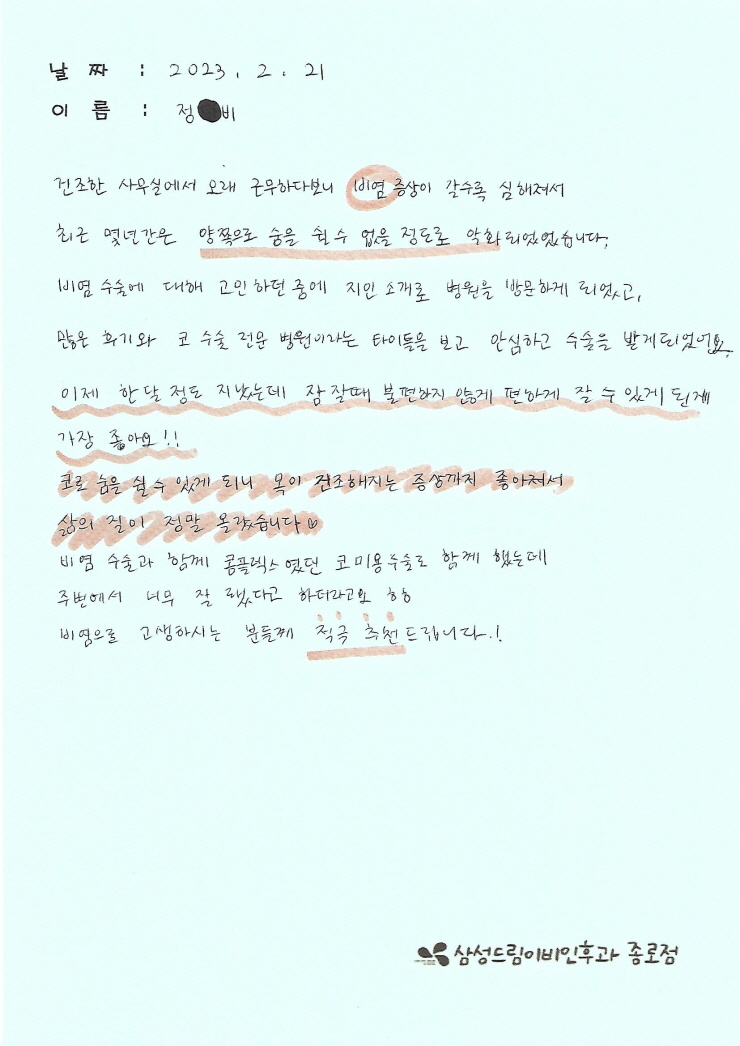 날 짜 : 2023. 2. 21
이 름 : 정 비
건조한 사무실에서 오래 근무하다보니 비염 증상이 갈수록 심해져서
최근 몇년간은 양쪽으로 숨을 쉴 수 없을 정도로 악화되었었습니다.
비염 수술에 대해 고민하던 중에 지인 소개로 병원을 방문하게 되었고,
많은 후기와 코 수술 전문 병원이라는 타이틀을 보고 안심하고 수술을 받게되었어요.
이제 한달 정도 지났는데 잠 잘때 불편하지 않게 편하게 잘 수 있게 된게
가장 좋아요!!
코로 숨을 쉴 수 있게 되니 목이 건조해지는 증상까지 좋아져서
삶의 질이 정말 올랐습니다♡
비염 수술과 함께 콤플렉스였던 코미용수술도 함께 했는데
주변에서 너무 잘 됐다고 하더라고요 ㅎㅎ
비염으로 고생하시는 분들께 적극 추천드립니다.!
삼성드림이비인후과 종로점